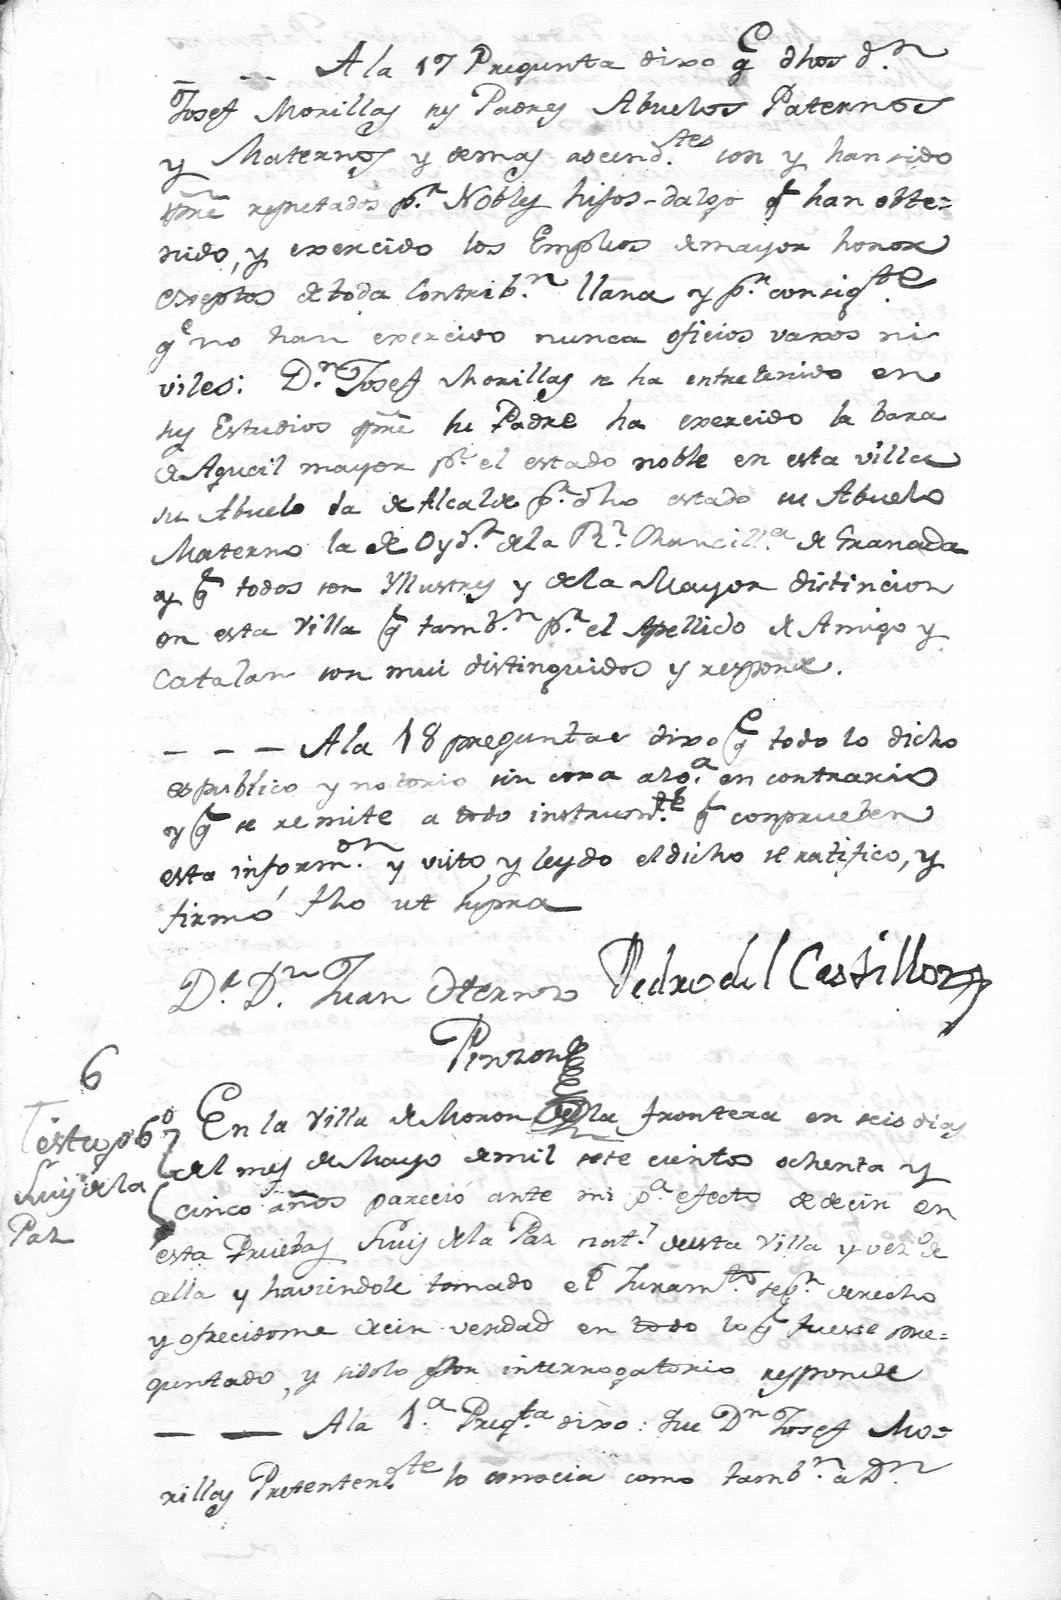 — — A la 17 Pregunta dixo q.e dhos d.n
Josef Morillas sus Padres Abuelos Paternos
y Maternos y demas ascend.tes son y han sido
spre reputados p.r Nobles hijos-dalgo q.e han obte=
nido, y exercido los Empleos de mayor honor
eseptos de toda Contrib.n llana y p.r consig.te
q.e no han exercido nunca oficios vaxos ni
viles: D.n Josef Morillas se ha entretenido en
sus Estudios spre su Padre ha exercido la bara
de Aguacil mayor p.r el estado noble en esta villa
su Abuelo la de Alcalde p.r dho estado su Abuelo
Materno la de Oyd.r de la R.l Chancill.a de Granada
y q.e todos son Yllustres y de la Mayor distincion
en esta Villa q.e tamb.n p.r el Apellido de Amigo y
Catalan son mui distinguidos y responde.
— — — A la 18 pregunta dixo q.e todo lo dicho
es publico y notorio sin cosa alg.a en contrario
y q.e se remite a todo instrum.to q.e conprueben
esta inform.on y visto, y leydo el dicho se ratifico, y
firmó fho ut supra
D.r D.n Juan Oterno Pedro del Castillo
Penzon
6
Testigo 6º
Luis de la
Paz
En la Villa de Moron de la frontera en seis dias
del mes de Mayo de mil sete cientos ochenta y
cinco años pareció ante mi p.a efecto de decir en
esta Pruebas Luis de la Paz nat.l de esta Villa y vez.o de
ella y haviendole tomado el Juram.to seg.n derecho
y ofrecidome decir verdad en todo lo q.e fuesse pre=
guntado, y sidolo por interrogatorio responde
— — A la 1.a Preg.ta dixo: que D.n Josef Mo=
rillas Pretend.te lo conocia como tamb.n a D.n